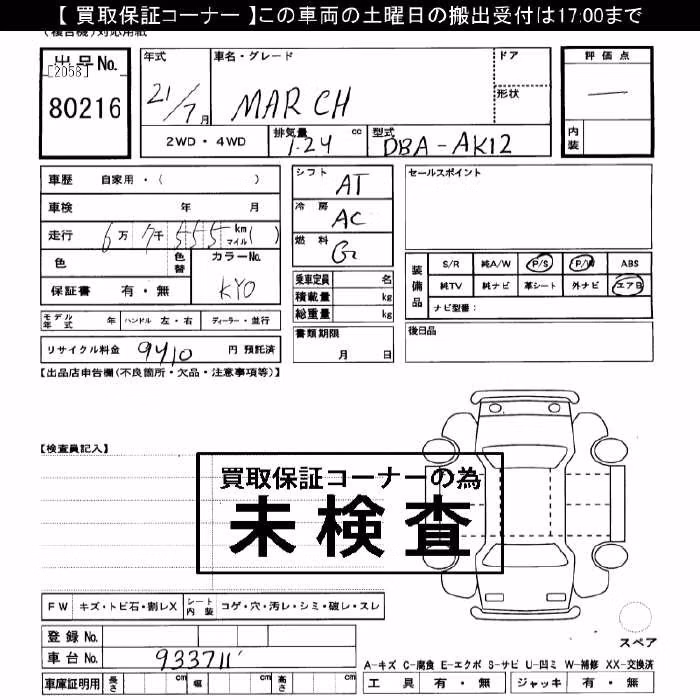 【 買取保証コーナー 】この車両の土曜日の搬出受付は17:00まで
(複合機)対応用紙
出品No. 年式 車名・グレード ドア 評価点
[2058]
80216 21/7月 MARCH 形状 —
2WD・4WD 排気量 1.24 cc 型式 DBA-AK12 内装
車歴 自家用・( ) シフト AT セールスポイント
車検 年 月 冷房 AC
走行 6万 7千 555 km マイル( ) 燃料 G
色 色替 カラーNo. KY0 乗車定員 名 装備品 S/R 純A/W P/S P/W ABS
保証書 有・無 積載量 kg 純TV 純ナビ 革シート 外ナビ エアB
総重量 kg ナビ型番:
モデル年式 年 ハンドル 左・右 ディーラー・並行 書類期限 後日品
リサイクル料金 9410 円 預託済 月 日
【出品店申告欄(不良箇所・欠品・注意事項等)】
【検査員記入】
買取保証コーナーの為
未検査
FW キズ・トビ石・割レX シート内装 コゲ・穴・汚レ・シミ・破レ・スレ
登録No. スペア
車台No. 933711 A-キズ C-腐食 E-エクボ S-サビ U-凹ミ W-補修 XX-交換済
車庫証明用 長さ cm 幅 cm 高さ cm 工具 有・無 ジャッキ 有・無